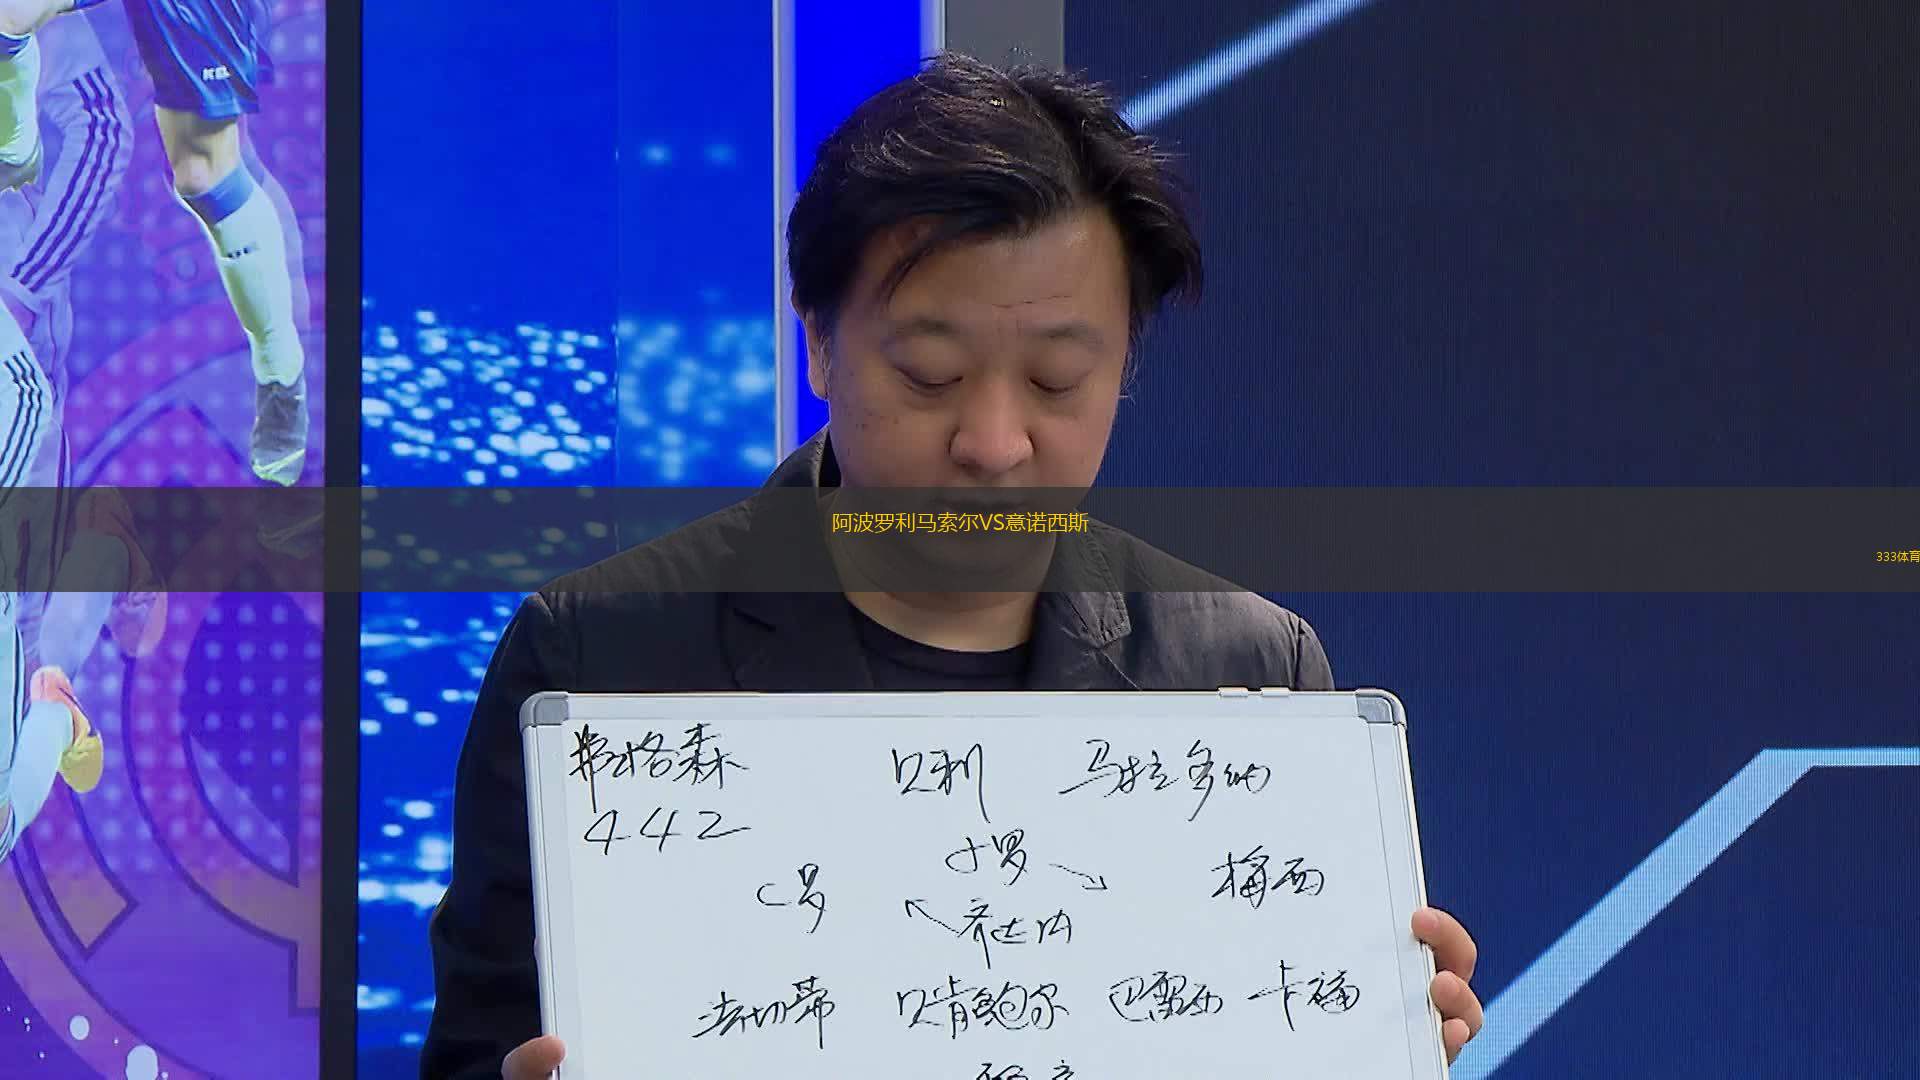 阿波罗利马索尔VS意诺西斯
333体育
弗格森 贝利 马拉多纳
442
小罗
C罗 梅西
齐达内
法切蒂 贝肯鲍尔 巴雷西 卡福